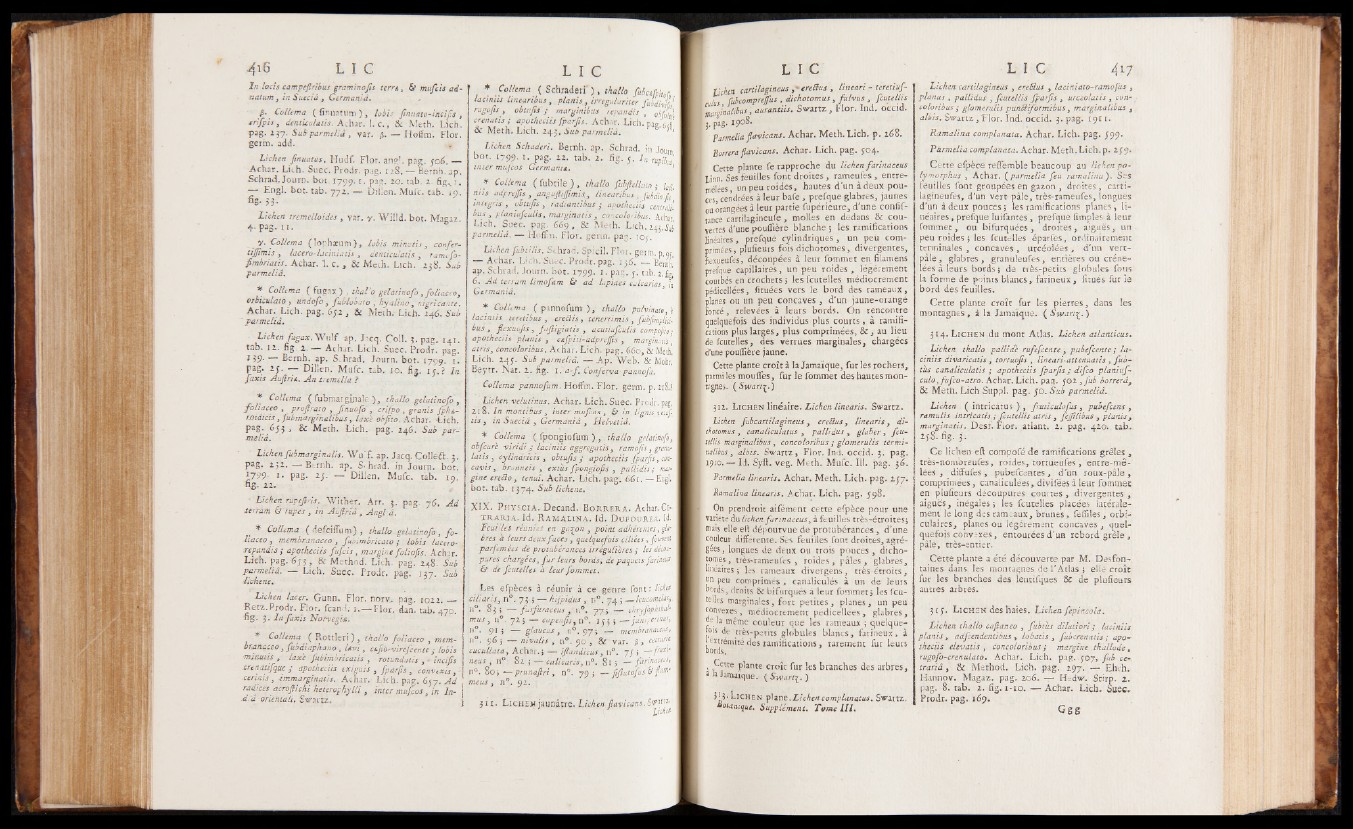 416 L I C
In locis campeſtribus graminoſis terrâ, & muſcis ad-
natum, in Suecia, Germania.
β. Collema (ſinuatum), lobis ſinuato-inciſis,
criſpis, denticulatis. Achar. l. c., & Meth. Lich.
pag. 237. Sub parmeliâ, var. β. — Hoffm. Flor.
germ. add.
Lichen ſinuatus. Hudſ. Flor. angl. pag. 506. —
Achar. Lich. Suec. Prodr. pag. 128. — Bernh. ap.
Schrad. Journ. bot. 1799. 1. pag. 20. tab. 2. fig. 1.
— Engl. bot. tab. 772. — Dillen. Muſc. tab. 19.
fig. 33.
Lichen tremelloides, var. γ. Willd. bot. Magaz.
4. pag. 11.
γ. Collema (lophæum), lobis minutis, confer-
tiſſimis, lacero-laciniatis, denticulatis, ramoſo-
fimbriatis. Achar. l. c., & Meth. Lich. 238. Sub
parmeliâ.
* Collema (fugax), thallo gelatinoſo, foliaceo,
orbiculato, undoſo, ſublobato, hyalino, nigricante.
Achar. Lich. pag. 652, & Meth. Lich. 246. Sub
parmeliâ.
Lichen fugax. Wulf. ap. Jacq. Coll. 3. pag. 141.
tab. 12. fig. 2. — Achar. Lich. Suec. Prodr. pag.
139. — Bernh. ap. Schrad. Journ. bot. 1799. 1.
pag. 25. — Dillen. Muſc. tab. 10. fig. 15.? In
ſaxis Auſtriæ. An tremella?
* Collema (ſubmarginale), thallo gelatinoſo,
foliaceo, proſtrato, ſinuoſo, criſpo, granis ſphæ-
roideis, ſubmarginalibus, laxè obſito. Achar. Lich.
pag. 653, & Meth. Lich. pag. 246. Sub par-
meliâ.
Lichen ſubmarginalis. Wulf. ap. Jacq. Collect. 3.
pag. 132. — Bernh. ap. Schrad. in Journ. bot.
1799. 1. pag. 23. — Dillen. Muſc. tab. 19.
fig. 22.
Lichen rupeſtris. Wither. Arr. 3. pag. 76. Ad
terram & rupes, in Auſtriâ, Angliâ.
* Collema (deſciſſum), thallo gelatinoſo, fo-
liaceo, membranaceo, ſubimbricato; lobis lacero-
repandis; apotheciis fuſcis, margine folioſis. Achar.
Lich. pag. 653, & Method. Lich. pag. 248. Sub
parmeliâ. — Lich. Suec. Prodr. pag. 137. Sub
lichene.
Lichen lacer. Gunn. Flor. norv. pag. 1022. —
Retz. Prodr. Flor. ſcand. 1. — Flor. dan. tab. 470.
fig. 3. In ſaxis Norvegiæ.
* Collema (Rottleri), thallo foliaceo, mem-
branaceo, ſubdiaphano, lævi, cæſio-vireſcente; lobis
minutis, laxè ſubimbricatis, rotundatis, inciſis
crenatiſque; apotheciis exiguis, ſparſis, convexis,
cerinis, immarginatis. Achar. Lich. pag. 657. Ad
radices acroſtichi heterophylli, inter muſcos, in In-
diâ orientali. Swartz.
L I C
* Collema (Schraderi), thallo
laciniis linearibus, planis, irregulariter
rugoſis, obtuſis; marginibus
crenatis; apotheciis ſparſis. Achar. Lich. pag.
& Meth. Lich. 243. Sub parmeliâ.
Lichen Schraderi. Bernh. ap. Schrad. in Journ.
bot. 1799. 1. pag. 22. tab. 2. fig. 5. In rupibus
inter muſcos Germaniæ.
* Collema (ſubtile), thallo ſubſtellato;
niis adpreſſis, anguſtiſſimis, linearibus,
integris, obtuſis, radiantibus; apotheciis
bus, planiuſculis, marginatis, concoloribus. Achar.
Lich. Suec. pag. 669, & Meth. Lich. 243. Sub
parmeliâ. — Hoffm. Flor. germ. pag. 105.
Lichen ſubtilis. Schrad. Spicil. Flor. germ. p. 95.
— Achar. Lich. Suec. Prodr. pag. 136. — Bernh.
ap. Schrad. Journ. bot. 1799. 1. pag. 5. tab. 2. fig.
6. Ad terram limoſam & ad lapides calcarias, in
Germaniâ.
* Collema (pannoſum), thallo pulvinato,
laciniis teretibus, erectis, tenerrimis,
bus, flexuoſis, faſtigiatis, acutiuſculis compoſito;
apotheciis planis, cæſpiti-adpreſſis, marginatis,
atris, concoloribus. Achar. Lich. pag. 660, & Meth.
Lich. 245. Sub parmeliâ. — Ap. Web. & Mohr.
Beytr. Nat. 2. fig. 1. a-f. Conferva pannoſa.
Collema pannoſum. Hoffm. Flor. germ. p.
Lichen velutinus. Achar. Lich. Suec. Prodr. pag.
218. In montibus, inter muſcos, & in lignis
tis, in Sueciâ, Germaniâ, Helvetiâ.
* Collema (ſpongioſum), thallo gelatinoſo,
obſcurè viridi; laciniis aggregatis, ramoſis,
latis, cylindricis, obtuſis; apotheciis ſparſis, con-
cavis, brunneis, extùs ſpongioſis, pallidis; mar-
gine erecto, tenui. Achar. Lich. pag. 661. — Engl.
bot. tab. 1374. Sub lichene.
XIX. Physcia. Decand. Borrera. Achar. Ce-
traria. Id. Ramalina. Id. Dufourea. Id.
Feuilles réunies en gazon, point adhérentes, gla-
bres à leurs deux faces, quelquefois ciliées, ſouvent
parſemées de protubérances irrégulières; les décou-
pures chargées, ſur leurs bords, de paquets farineux
& de ſcutelles à leur ſommet.
Les eſpèces à réunir à ce genre ſont: Lichen
ciliaris, n°. 73; — hiſpidus, n°. 74; — leucomelas,
n°. 83; — furfuraceus, n°. 77; — chryſophtal-
mus, n°. 72; — capenſis, n°. 155;
n°. 91; — glaucus, n°. 97; — membranaceus,
n°. 96; — nivalis, n°. 90, & var. β,
cucullata, Achar.; — iſlandicus, n°. 75; — fraxi-
neus, n°. 82; — calicaris, n°. 81; — farinaceus,
n°. 80; — prunaſtri, n°. 79; — fiſtuloſus & flam-
meus, n°. 92.
311. Lichen jaunâtre. Lichen flavicans. Swartz.
Lichen
L I C
Lichen cartilagineus, erectus, lineari-teretiuſ-
culus, ſubcompreſſus, dichotomus, fulvus, ſcutellis
marginalibus, aurantiis. Swartz, Flor. Ind. occid.
3. pag. 1908.
Parmelia flavicans. Achar. Meth. Lich. p. 268.
Borrera flavicans. Achar. Lich. pag. 504.
Cette plante ſe rapproche du lichen farinaceus
Linn. Ses feuilles ſont droites, rameuſes, entre-
mêlées, un peu roides, hautes d'un à deux pou-
ces, cendrées à leur baſe, preſque glabres, jaunes
ou orangées à leur partie ſupérieure, d'une conſiſ-
tance cartilagineuſe, molles en dedans & cou-
vertes d'une pouſſière blanche; les ramifications
linéaires, preſque cylindriques, un peu com-
primées, pluſieurs fois dichotomes, divergentes,
rameuſes, découpées à leur ſommet en filamens
preſque capillaires, un peu roides, légérement
courbés en crochets; les ſcutelles médiocrement
pédicellées, ſituées vers le bord des rameaux,
planes ou un peu concaves, d'un jaune-orangé
foncé, relevées à leurs bords. On rencontre
quelquefois des individus plus courts, à ramifi-
cations plus larges, plus comprimées, &, au lieu
de ſcutelles, des verrues marginales, chargées
d'une pouſſière jaune.
Cette plante croît à la Jamaïque, ſur les rochers,
parmi les mouſſes, ſur le ſommet des hautes mon-
tagnes. (Swartz.)
312. Lichen linéaire. Lichen linearis. Swartz.
Lichen ſubcartilagineus, erectus, linearis, di-
chotomus, canaliculatus, pallidus, glaber, ſcu-
tellis marginalibus, concoloribus; glomerulis termi-
nalibus, albis. Swartz, Flor. Ind. occid. 3. pag.
1910. — Id. Syſt. veg. Meth. Muſc. III. pag. 36.
Parmelia linearis. Achar. Meth. Lich. pag. 257.
Ramalina linearis. Achar. Lich. pag. 598.
On prendroit aiſément cette eſpèce pour une
variété du lichen farinaceus, à feuilles très-étroites;
mais elle eſt dépourvue de protubérances, d'une
couleur différente. Ses feuilles ſont droites, agré-
gées, longues de deux ou trois pouces, dicho-
tomes, très-rameuſes, roides, pâles, glabres,
linéaires; les rameaux divergens, très-étroits,
un peu comprimés, canaliculés à un de leurs
bords, droits & bifurqués à leur ſommet; les ſcu-
telles marginales, fort petites, planes, un peu
convexes, médiocrement pédicellées, glabres,
de la même couleur que les rameaux; quelque-
fois de très-petits globules blancs, farineux, à
l'extrémité des ramifications, rarement ſur leurs
bords.
Cette plante croît ſur les branches des arbres,
à la Jamaïque. (Swartz.)
313. Lichen plane. Lichen complanatus. Swartz.
Botanique. Supplément. Tome III.
L I C 417
Lichen cartilagineus, erectus, laciniato-ramoſus,
planus, pallidus, ſcutellis ſparſis, urceolatis, con-
coloribus; glomerulis punctiformibus, marginalibus,
albis. Swartz, Flor. Ind. occid. 3. pag. 1911.
Ramalina complanata. Achar. Lich. pag. 599.
Parmelia complanata. Achar. Meth. Lich. p. 259.
Cette eſpèce reſſemble beaucoup au lichen po-
lymorphus, Achar. (parmelia ſeu ramalina). Ses
feuilles ſont groupées en gazon, droites, carti-
lagineuſes, d'un vert pâle, très-rameuſes, longues
d'un à deux pouces; les ramifications planes, li-
néaires, preſque luiſantes, preſque ſimples à leur
ſommet, ou bifurquées, droites, aiguës, un
peu roides; les ſcutelles éparſes, ordinairement
terminales, concaves, urcéolées, d'un vert-
pâle, glabres, granuleuſes, entières ou créne-
lées à leurs bords; de très-petits globules ſous
la forme de points blancs, farineux, ſitués ſur le
bord des feuilles.
Cette plante croît ſur les pierres, dans les
montagnes, à la Jamaïque. (Swartz.)
314. Lichen du mont Atlas. Lichen atlanticus.
Lichen thallo pallidè rufeſcente, pubeſcente; la-
ciniis divaricatis, tortuoſis, lineari-attenuatis, ſub-
tùs canaliculatis; apotheciis ſparſis; diſco planiuſ-
culo, fuſco-atro. Achar. Lich. pag. 502, ſub borrerâ,
& Meth. Lich. Suppl. pag. 50. Sub parmeliâ.
Lichen (intricatus), fruticuloſus, pubeſcens,
ramulis intricatis; ſcutellis atris, ſeſſilibus, planis,
marginatis. Desf. Flor. atlant. 2. pag. 420. tab.
258. fig. 3.
Ce lichen eſt compoſé de ramifications grêles,
très-nombreuſes, roides, tortueuſes, entre-mê-
lées, diffuſes, pubeſcentes, d'un roux-pâle,
comprimées, canaliculées, diviſées à leur ſommet
en pluſieurs découpures courtes, divergentes,
aiguës, inégales; les ſcutelles placées latérale-
ment le long des rameaux, brunes, ſeſſiles, orbi-
culaires, planes ou légérement concaves, quel-
quefois convexes, entourées d'un rebord grêle,
pâle, très-entier.
Cette plante a été découverte par M. Desfon-
taines dans les montagnes de l'Atlas; elle croît
ſur les branches des lentiſques & de pluſieurs
autres arbres.
315. Lichen des haies. Lichen ſepincola.
Lichen thallo caſtaneo, ſubtùs dilutiori; laciniis
planis, adſcendentibus, lobatis, ſubcrenatis; apo-
theciis elevatis, concoloribus; margine thallode,
rugoſo-crenulato. Achar. Lich. pag. 507, ſub ce-
trariâ, & Method. Lich. pag. 297. — Ehrh.
Hannov. Magaz. pag. 206. — Hedw. Stirp. 2.
pag. 8. tab. 2. fig. 1-10. — Achar. Lich. Suec.
Prodr. pag. 169.
Ggg